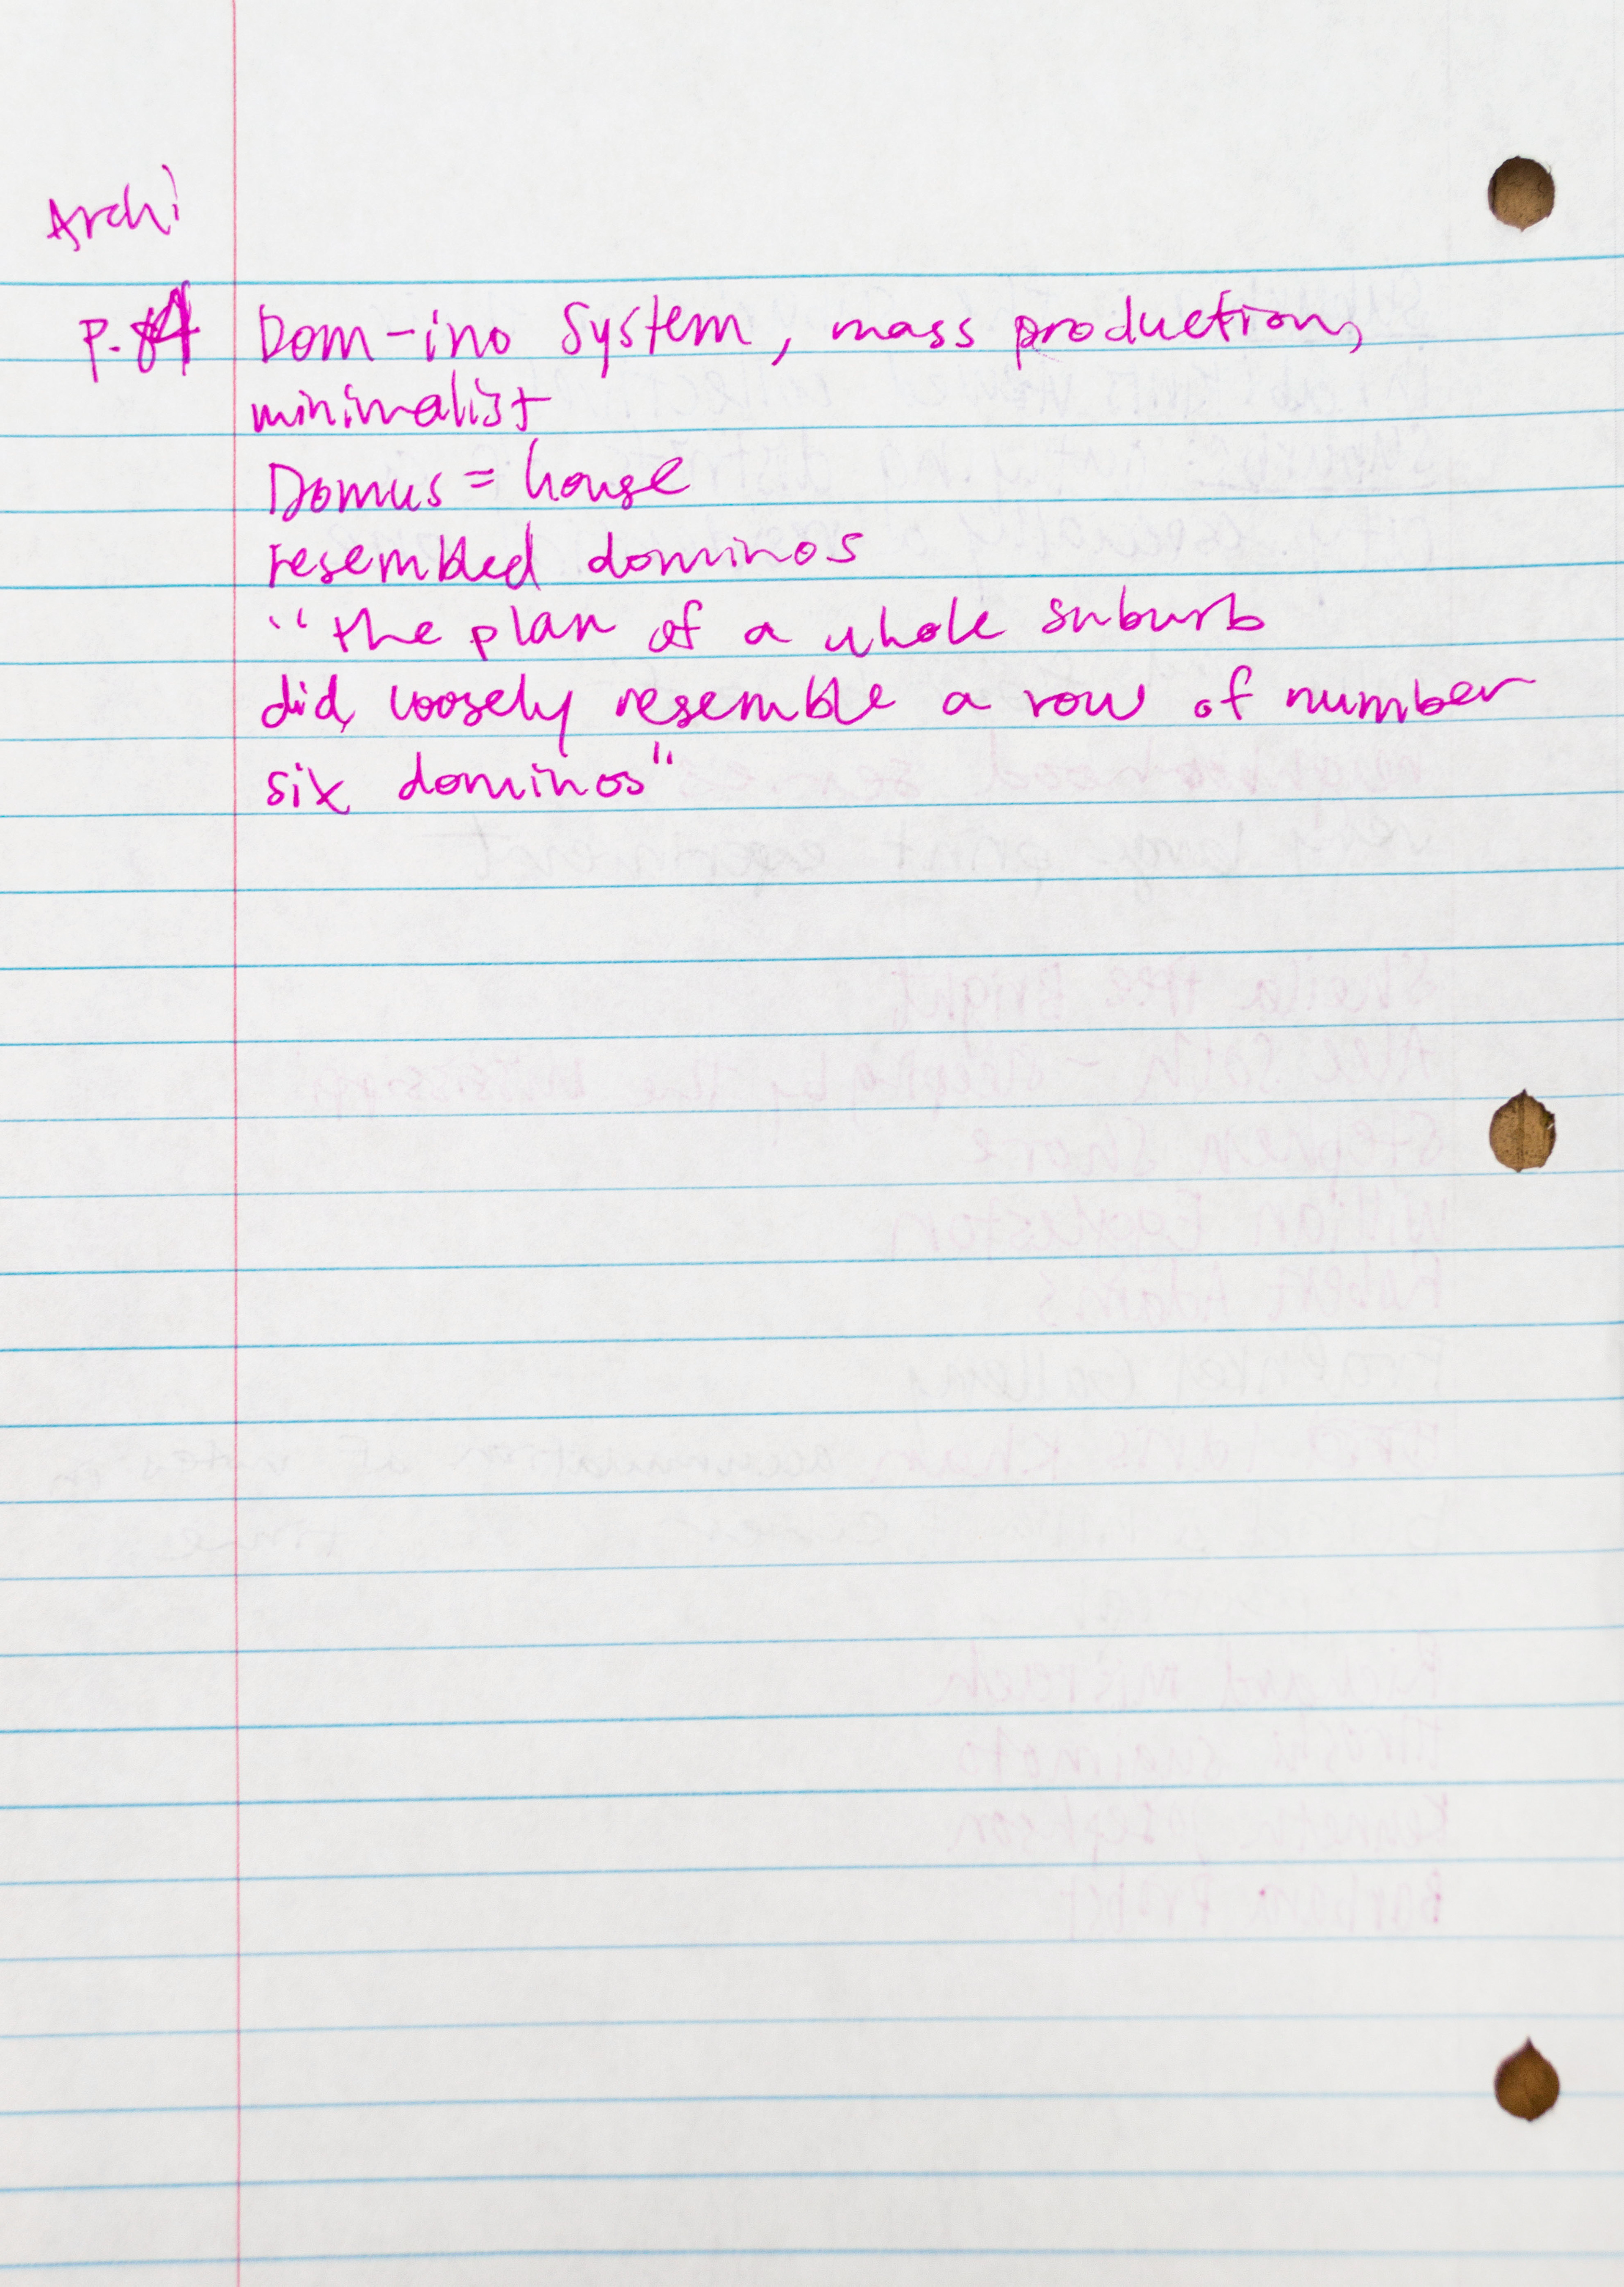 Archi
P. Dom-ino System, mass production,
minimalist
Domus = house
resembled dominos
"the plan of a whole suburb
did, loosely resemble a row of number
six dominos"